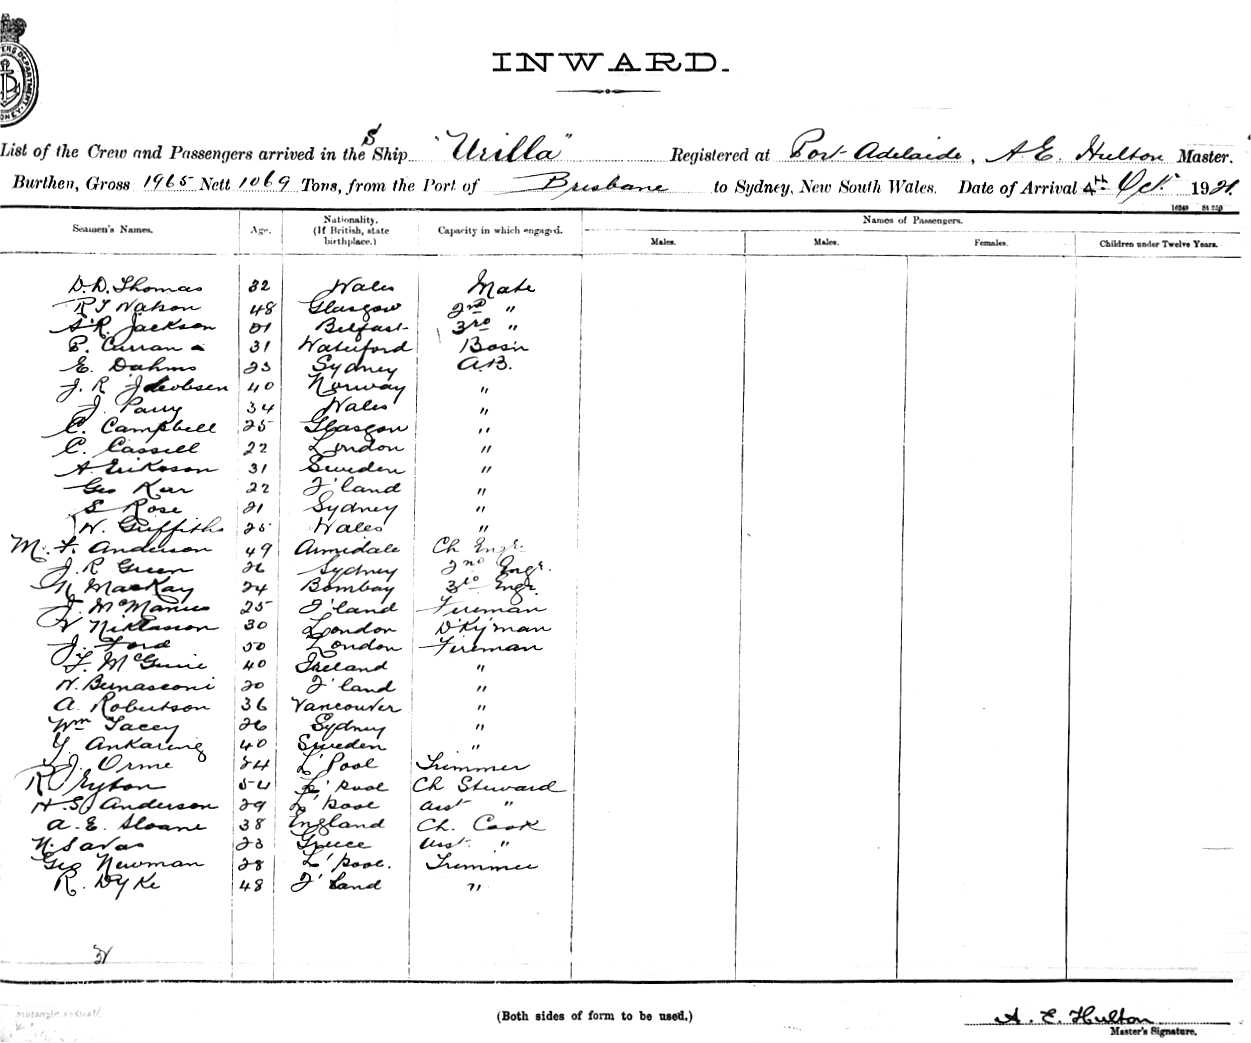 INWARD.
List of the Crew and Passengers arrived in the S Ship "Urilla" Registered at Port Adelaide, A E. Hulton Master.
Burthen, Gross 1965 Nett 1069 Tons, from the Port of Brisbane to Sydney, New South Wales. Date of Arrival 4TH Oct. 1921.
Seamen's Names. Age. Nationality. (If British, state birthplace.) Capacity in which engaged. Names of Passengers.
Males. Males. Females. Children under Twelve Years.
D. D. Thomas 32 Wales Mate
R J Watson 48 Glasgow 2nd "
A. R. Jackson 51 Belfast 3rd "
P. Curran 31 Waterford Bosn
E. Dahms 23 Sydney A.B.
J. R. Jacobsen 40 Norway "
J. Parry 34 Wales "
C. Campbell 25 Glasgow "
C. Cassell 22 London "
A. Erikson 31 Sweden "
Geo Kerr 22 I'land "
S Rose 21 Sydney "
W. Griffiths 25 Wales "
M. F. Anderson 49 Armidale Ch Engr.
J. R Green 26 Sydney 2nd Engr.
N MacKay 24 Bombay 3rd Engr.
J. McManus 25 I'land Fireman
V Niklasson 30 London D'Kyman
J. Ford 50 London Fireman
F. McGuire 40 Ireland "
W. Bernasconi 20 I'land "
A. Robertson 36 Vancouver "
Wm Tacey 26 Sydney "
Y. Ankaring 40 Sweden "
J. Orme 24 L'Pool Trimmer
R Eyton 54 L'pool Ch Steward
H. S. Anderson 29 L'pool Asst "
A. E. Sloane 38 England Ch. Cook
N. Savas 23 Greece Asst. "
Geo Newman 28 L'pool. Trimmer
R. Dyke 48 I'land "
(Both sides of form to be used.)
A. E. Hulton
Master's Signature.